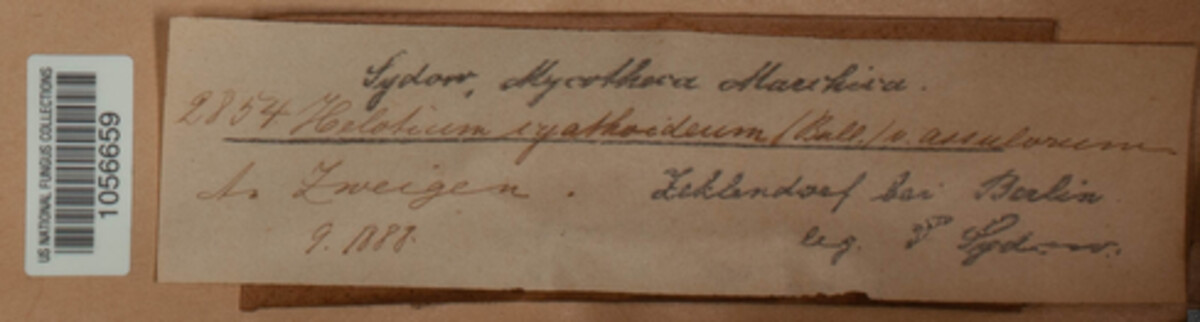 US NATIONAL FUNGUS COLLECTIONS
1056659
Sydow, Mycotheca Marchica.
2854 Helotium cyathoideum (Bull.) v. assulorum
A. Zweigen.
Zehlendorf bei Berlin
9. 1888.
leg. P Sydow.